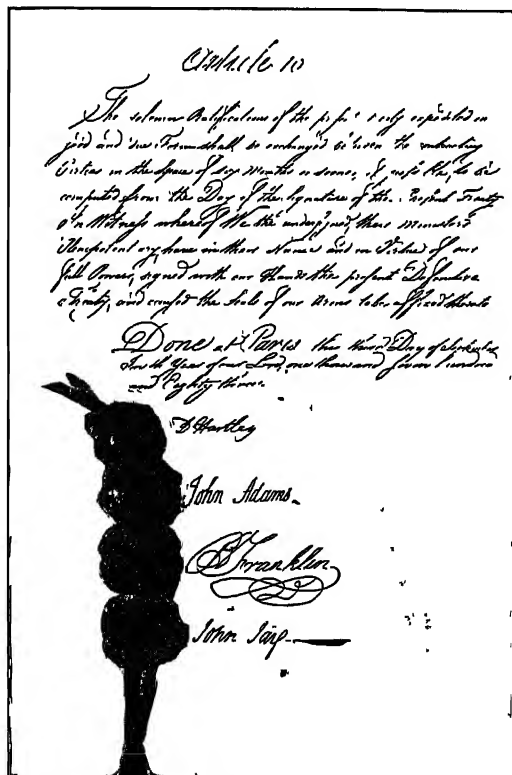 Article 10
The solemn Ratifications of the present expedited in
good and due Form shall be exchanged between the contracting
Parties in the Space of six Months or sooner if possible to be
computed from the Day of the Signature of the present Treaty
In Witness whereof We the undersigned their Ministers
Plenipotentiary have in their Name and in Virtue of our
Full Powers, signed with our Hands the present Definitive
Treaty, and caused the Seals of our Arms to be affixed thereto
Done at Paris this third Day of September
In the Year of our Lord, one thousand seven hundred
and Eighty three
D Hartley
John Adams
B Franklin
John Jay